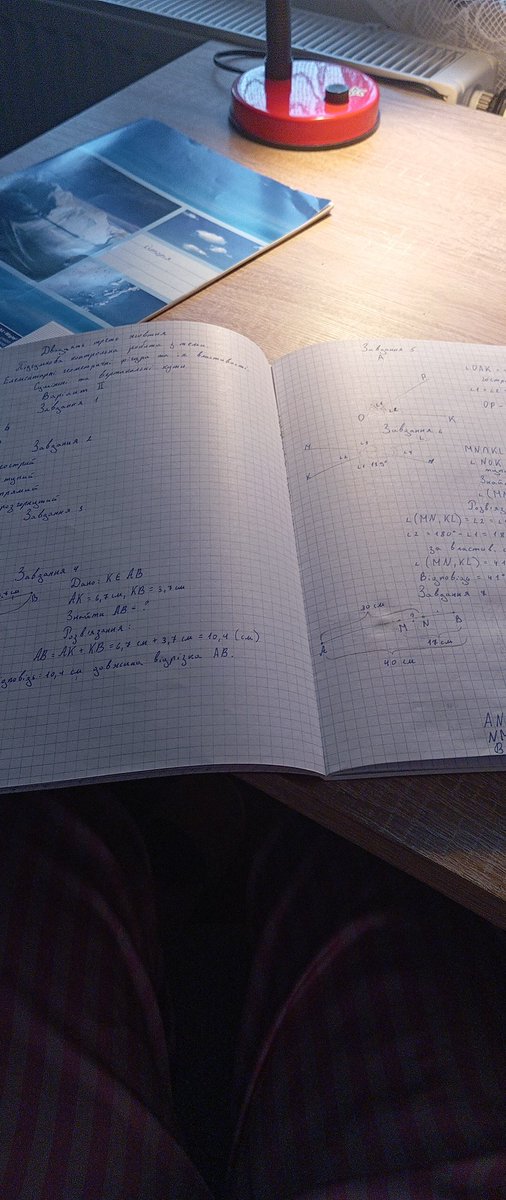 історія
Двадцять третє жовтня
Підсумкова контрольна робота з теми
Елементарні геометричні фігури та їх властивості.
Суміжні та вертикальні кути
Варіант II
Завдання 1
Завдання 2
гострий
тупий
прямий
розгорнутий
Завдання 3
Завдання 4
B
Дано: K ∈ AB
AK = 6,7 см, KB = 3,7 см
Знайти: AB - ?
Розв'язання:
AB = AK + KB = 6,7 см + 3,7 см = 10,4 (см)
10,4 см довжина відрізка AB.
Завдання 5
A
P
O
K
∠OAK
∠1 = ∠2
OP -
Завдання 6
L
M
N
K
MN∩KL
∠NOK
Знайт
∠(MN
Розв'яз
∠(MN, KL) = ∠2 = ∠
∠2 = 180° - ∠1 = 18
за властив.
∠(MN, KL) = 41
Відповідь = 41°
Завдання 7
30 см
A
M
?
N
B
17 см
40 см
AN
NM
B